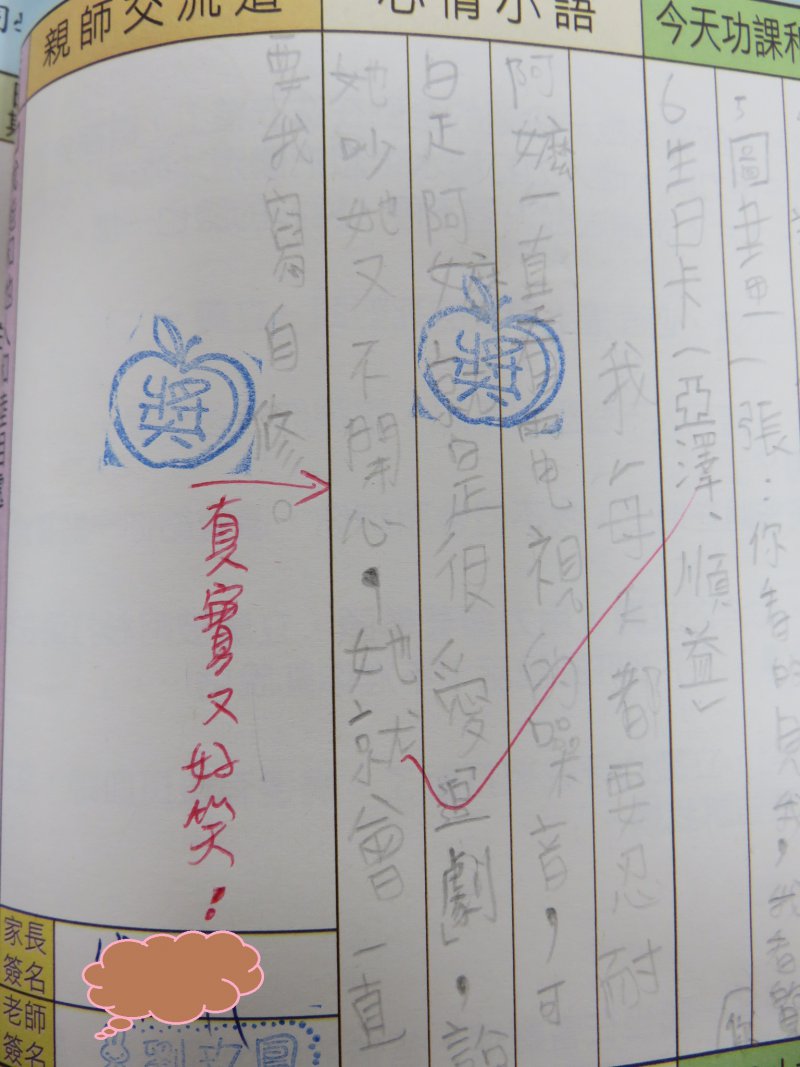 今天功課
心情小語
親師交流道
圖畫 一張：你看的見我，我看
6生日卡（亞澤、順益）
我 母 都要忍耐
阿嬤一直看電視的噪音，可
是阿嬤就是很愛「 劇」，說
她吵她又不開心，她就會一直
要我 自修。
獎
獎
真實又好笑！
家長簽名
老師簽名